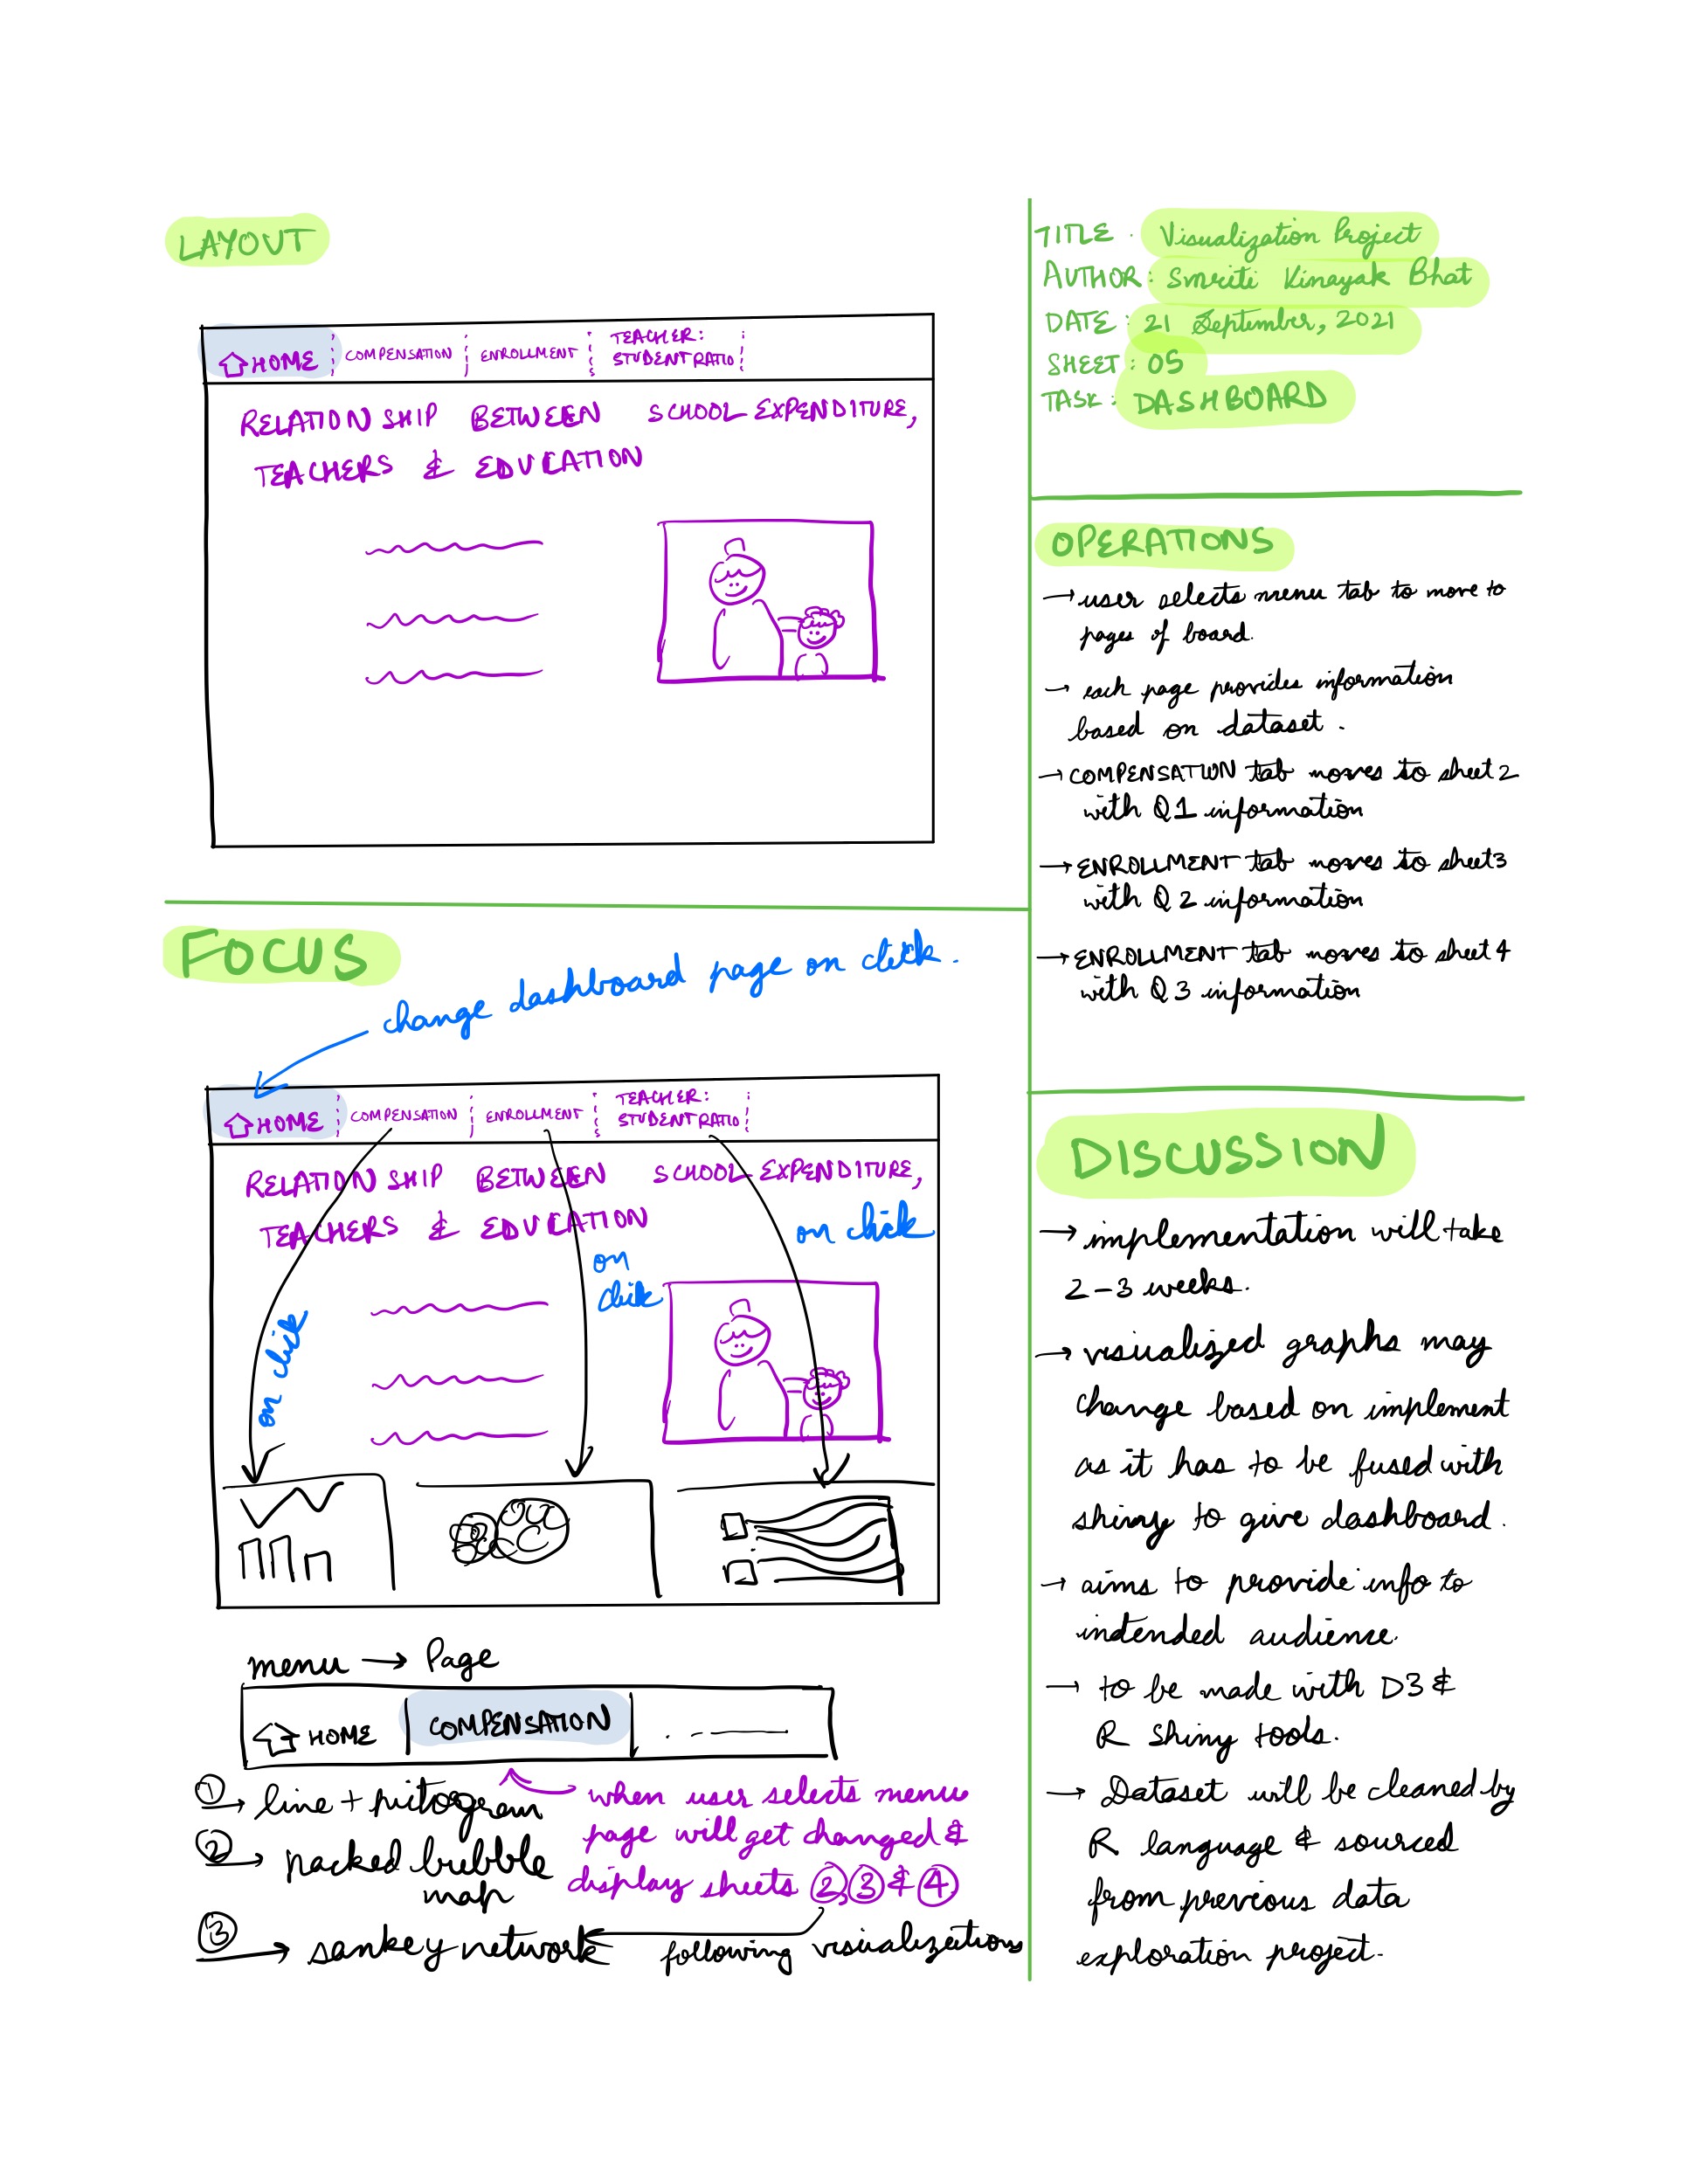 LAYOUT
HOME
COMPENSATION
ENROLLMENT
TEACHER:
STUDENT RATIO
RELATIONSHIP BETWEEN SCHOOL EXPENDITURE,
TEACHERS & EDUCATION
FOCUS
change dashboard page on click.
HOME
COMPENSATION
ENROLLMENT
TEACHER:
STUDENT RATIO
RELATIONSHIP BETWEEN SCHOOL EXPENDITURE,
TEACHERS & EDUCATION
on click
on
click
on click
menu → Page
HOME
COMPENSATION
① → line + pitogram
② → packed bubble
map
③ → sankey network
when user selects menu
page will get changed &
display sheets ② ③ & ④
following visualizations
TITLE : Visualization Project
AUTHOR : Smriti Kinayak Bhat
DATE : 21 September, 2021
SHEET : 05
TASK : DASHBOARD
OPERATIONS
→ user selects menu tab to move to
pages of board.
→ each page provides information
based on dataset.
→ COMPENSATION tab moves to sheet 2
with Q1 information
→ ENROLLMENT tab moves to sheet 3
with Q2 information
→ ENROLLMENT tab moves to sheet 4
with Q3 information
DISCUSSION
→ implementation will take
2-3 weeks.
→ visualized graphs may
change based on implement
as it has to be fused with
shiny to give dashboard.
→ aims to provide info to
intended audience.
→ to be made with D3 &
R Shiny tools.
→ Dataset will be cleaned by
R language & sourced
from previous data
exploration project.